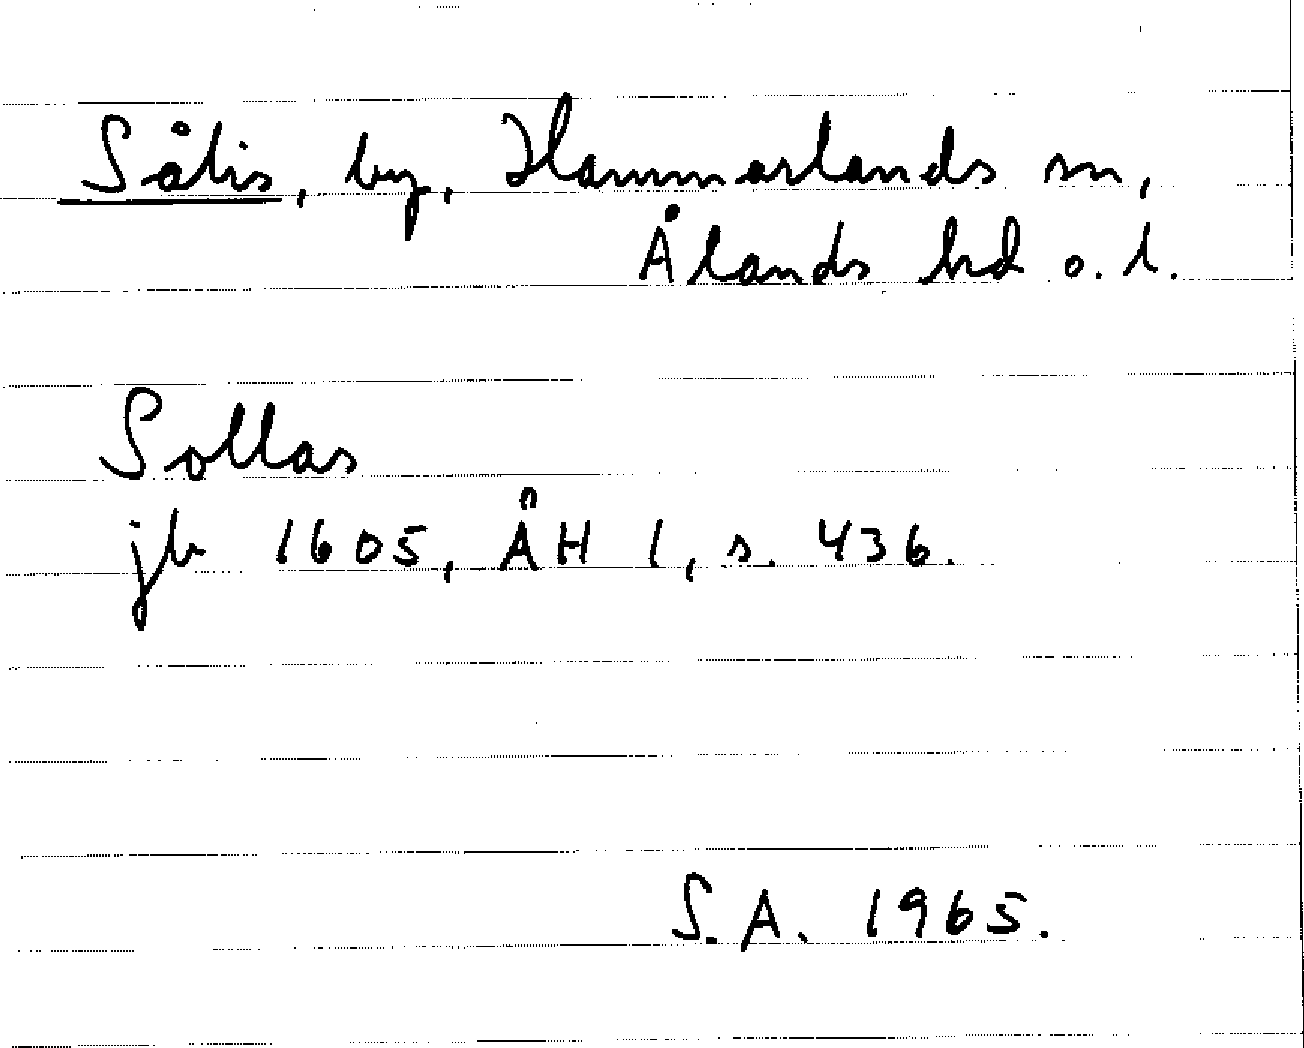 Sålis, by, Hammarlands sn,
Ålands hd o. l.
Sollas
jb 1605, ÅH 1, s. 436.
S.A. 1965.